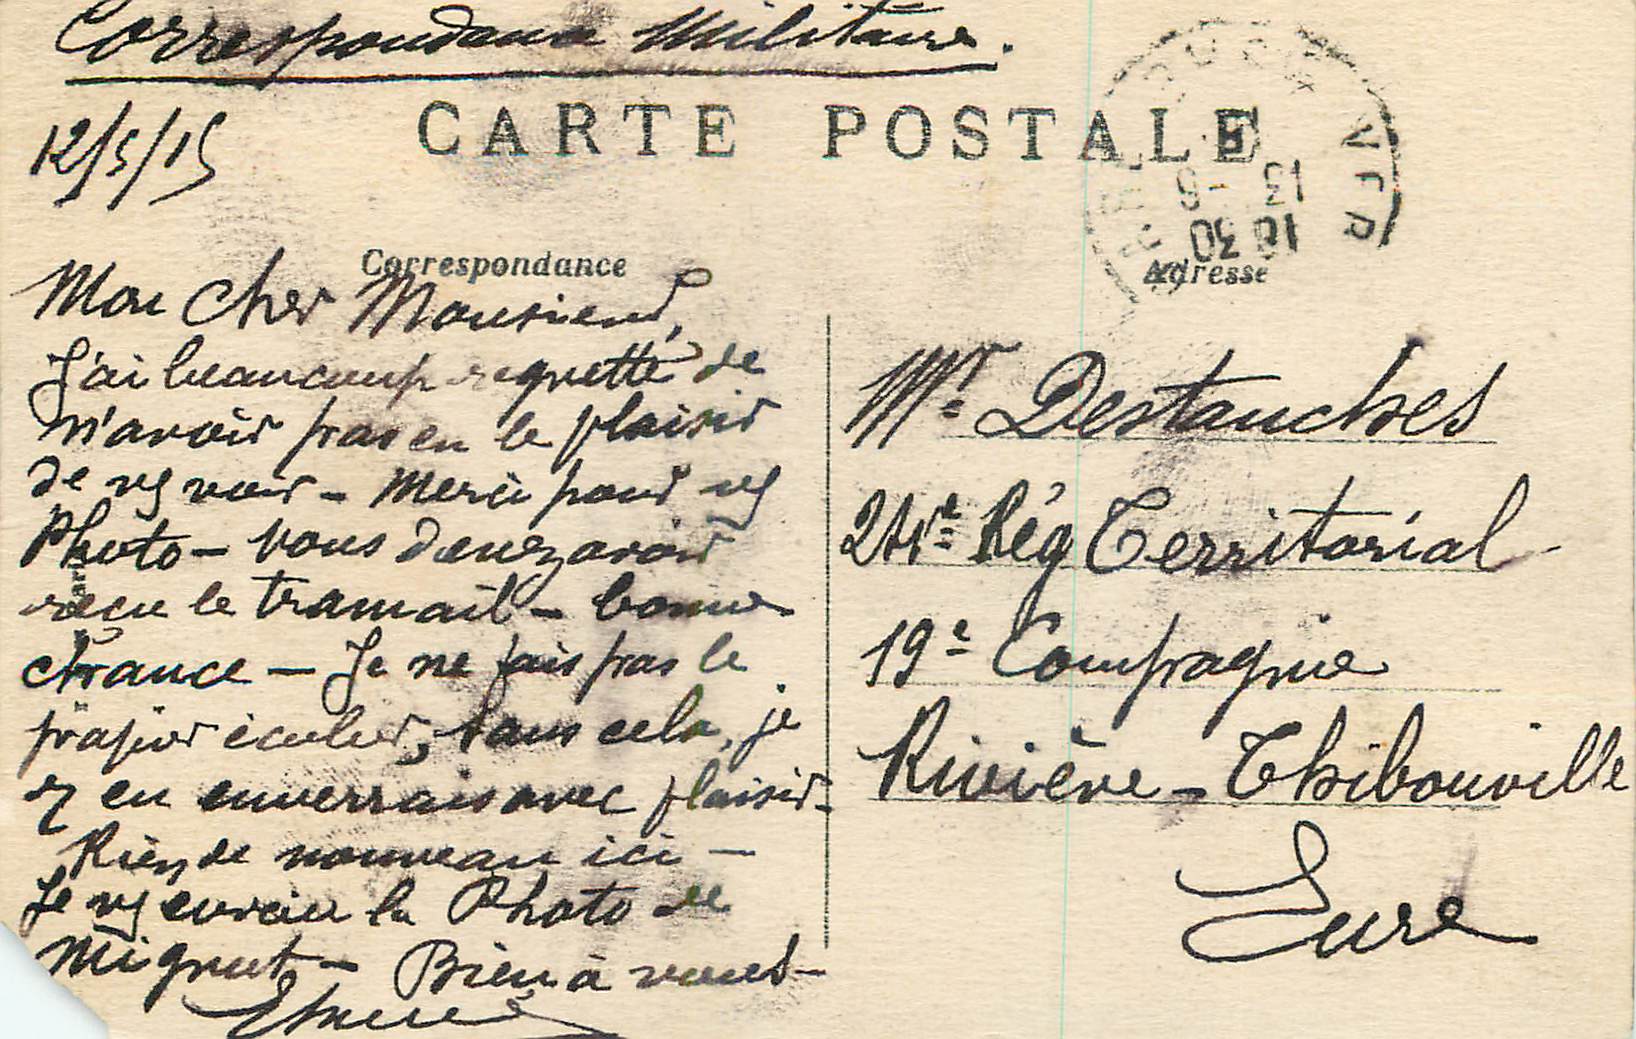 Correspondance Militaire.
CARTE POSTALE
12/5/15
Correspondance
Adresse
13 - 5
Mon cher Monsieur,
J'ai beaucoup regretté de
n'avoir pas eu le plaisir
de vs voir - Merci pour vs
Photo - Vous devez avoir
reçu le travail - bonne
chance - Je ne fais pas le
papier écolier, sans cela, je
en enverrais avec plaisir -
Rien de nouveau ici -
Je vs envoie la Photo de
Bien à vous -
Mr. Destauches
Rég Territorial
19e Compagnie
Rivière - Thibouville
Eure